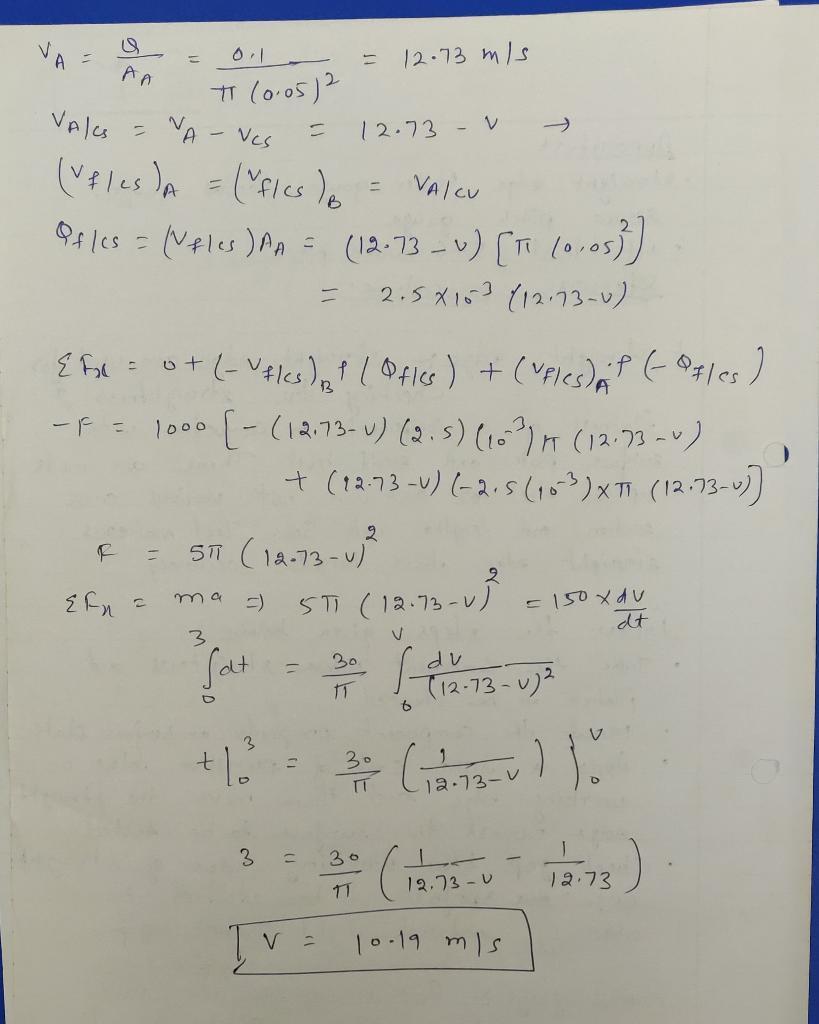 V_A = Q / A_A = 0.1 / π (0.05)² = 12.73 m/s
V_A/cs = V_A - V_cs = 12.73 - v →
(V_f/cs)_A = (V_f/cs)_B = V_A/cv
Q_f/cs = (V_f/cs) A_A = (12.73 - v) [π (0.05)²]
= 2.5 × 10⁻³ (12.73-v)
Σ Fx = 0 + (-V_f/cs)_B ρ (Q_f/cs) + (V_f/cs)_A ρ (-Q_f/cs)
-F = 1000 [ - (12.73-v) (2.5) (10⁻³) π (12.73-v)
+ (12.73-v) (-2.5 (10⁻³) × π (12.73-v)]
F = 5π (12.73-v)²
Σ Fx = ma ⇒ 5π (12.73-v)² = 150 × dv/dt
∫₀³ dt = 30/π ∫₀^v dv / (12.73-v)²
t |₀³ = 30/π (1 / 12.73-v) }₀^v
3 = 30/π (1 / 12.73-v - 1 / 12.73) .
V = 10.19 m/s